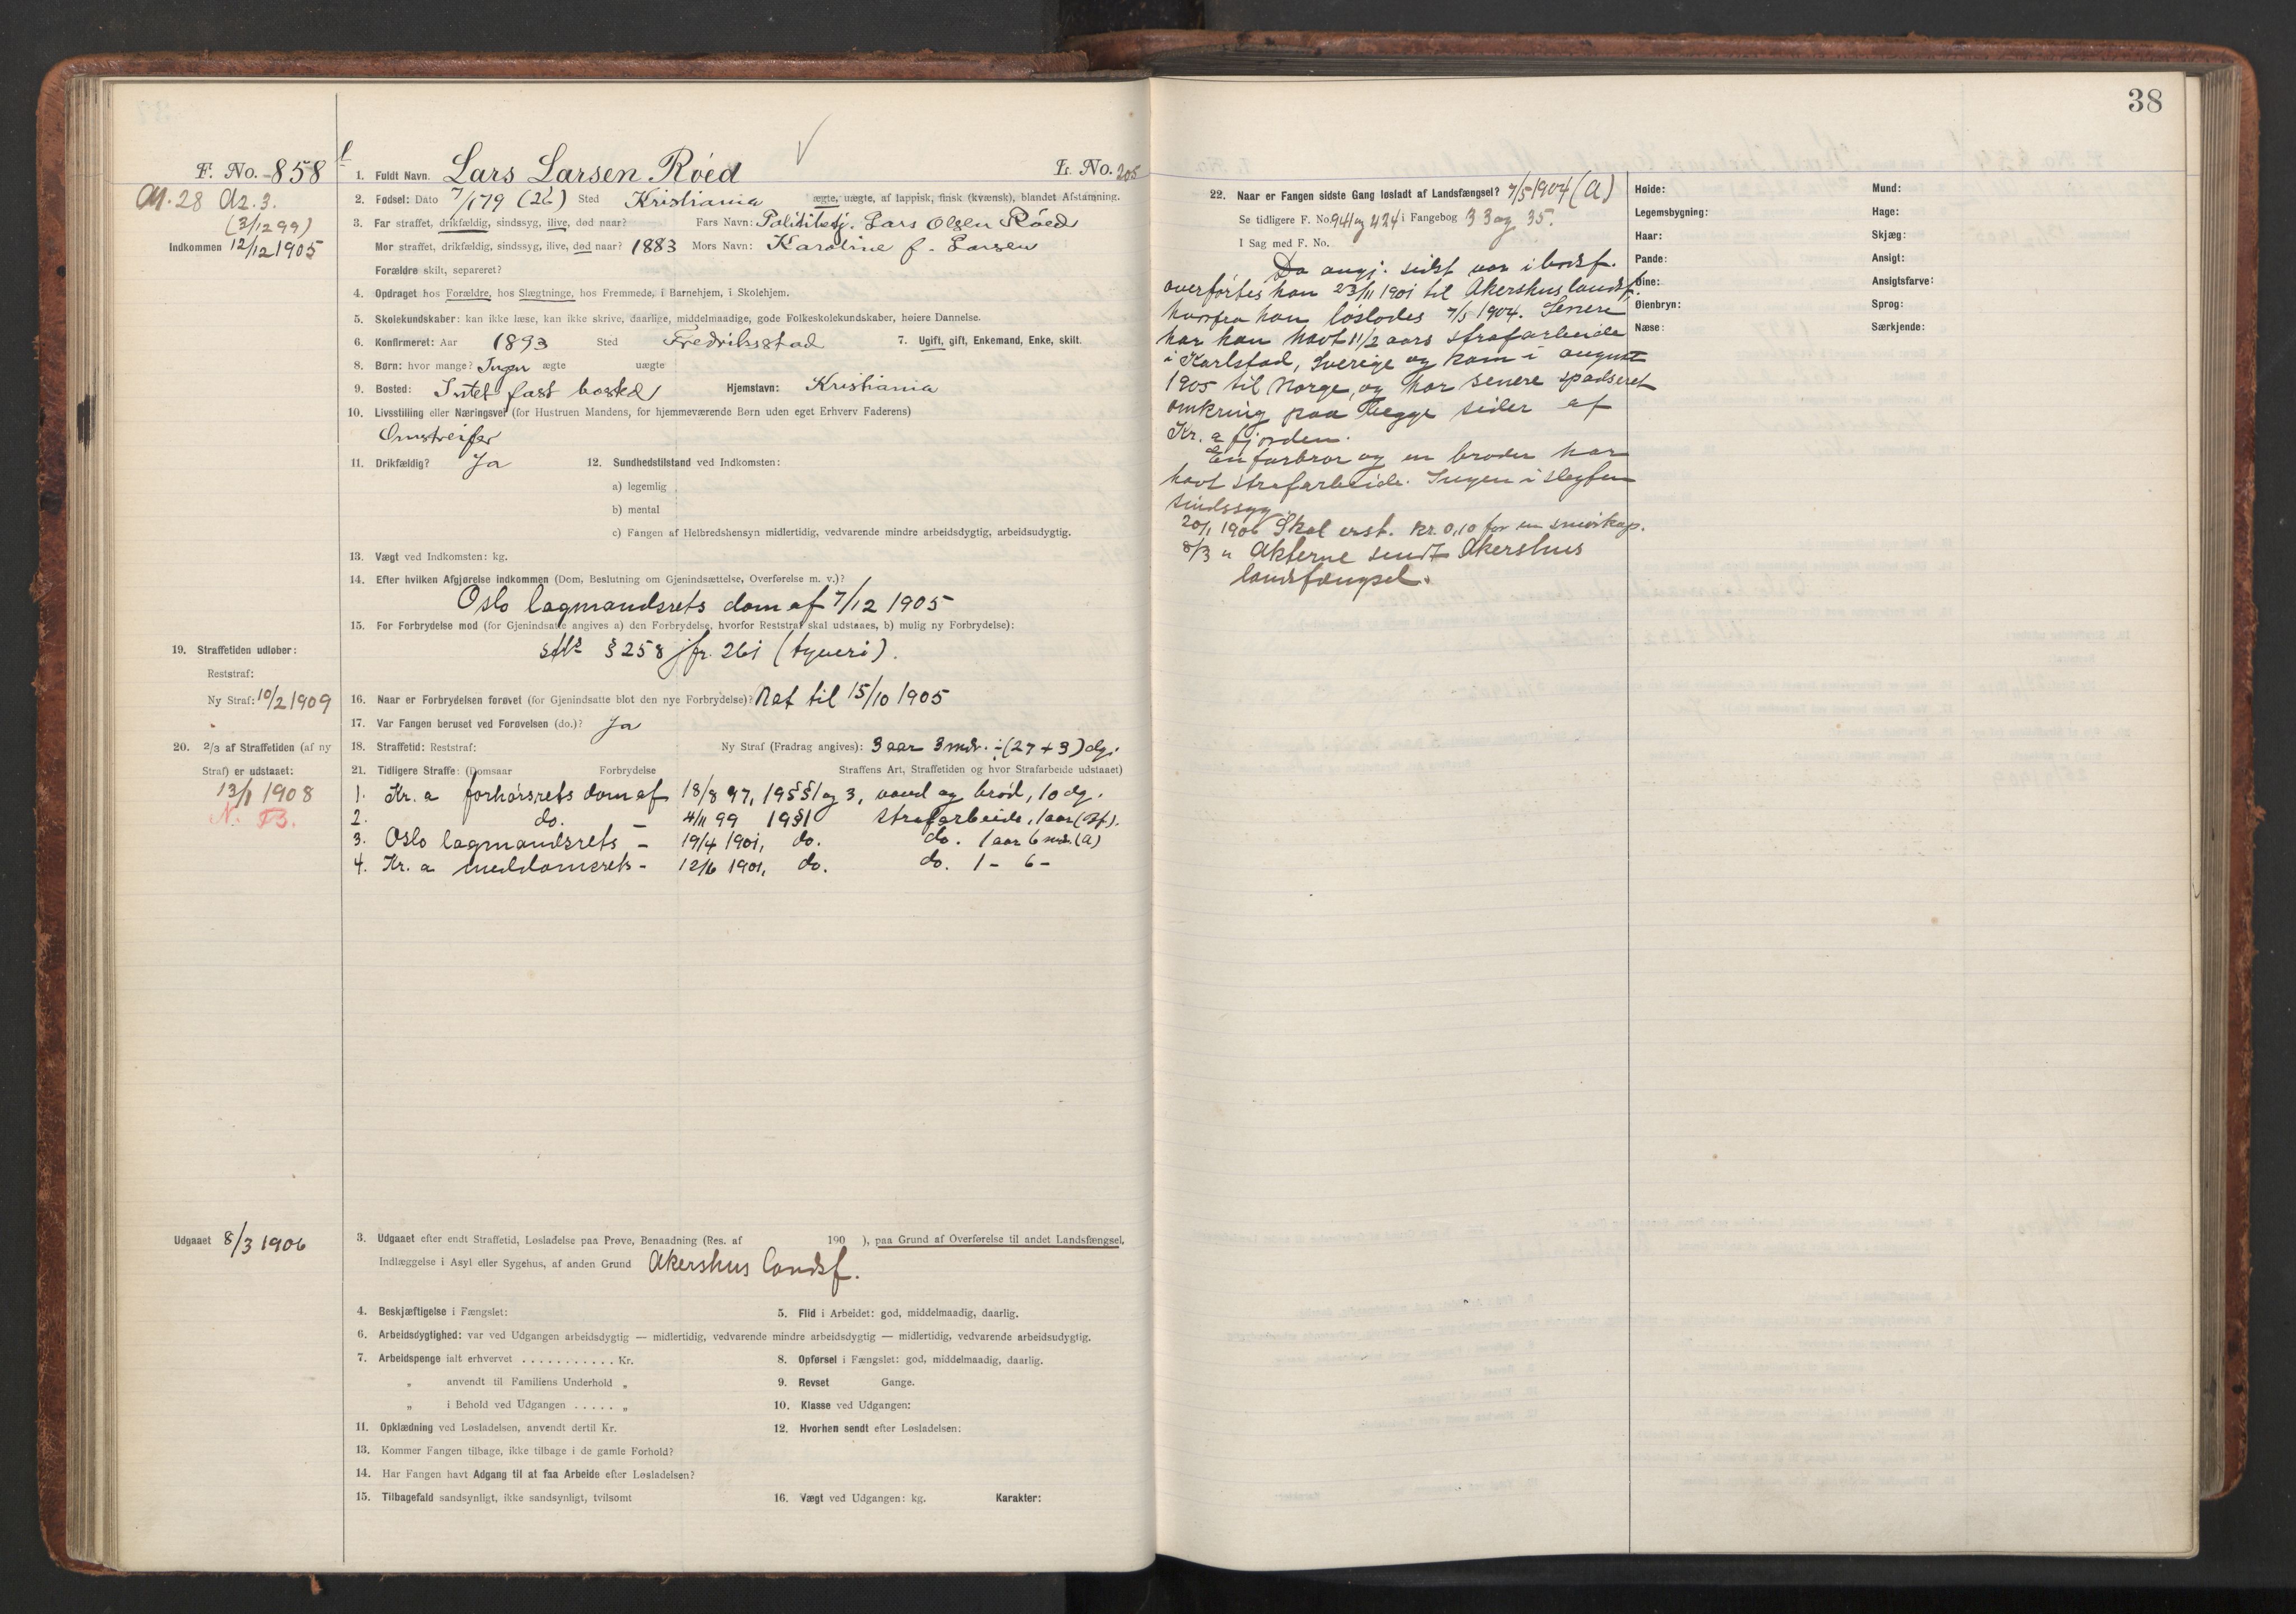 38
F. No. 858
M. 28 Az. 3.
(3/12 99)
Indkommen 12/12 1905
1. Fuldt Navn. Lars Larsen Röed L. No. 205
2. Fødsel: Dato 7/1 79 (26) Sted Kristiania ægte, uægte, af lappisk, finsk (kvænsk), blandet Afstamning.
3. Far straffet, drikfældig, sindssyg, ilive, død naar? Fars Navn: Politibetj. Lars Olsen Röed
Mor straffet, drikfældig, sindssyg, ilive, død naar? 1883 Mors Navn: Karoline f. Larsen
Forældre skilt, separeret?
4. Opdraget hos Forældre, hos Slægtninge, hos Fremmede, i Barnehjem, i Skolehjem.
5. Skolekundskaber: kan ikke læse, kan ikke skrive, daarlige, middelmaadige, gode Folkeskolekundskaber, høiere Dannelse.
6. Konfirmeret: Aar 1893 Sted Fredriksstad 7. Ugift, gift, Enkemand, Enke, skilt.
8. Børn: hvor mange? Ingen ægte uægte
9. Bosted: Intet fast bosted Hjemstavn: Kristiania
10. Livsstilling eller Næringsvei (for Hustruen Mandens, for hjemmeværende Børn uden eget Erhverv Faderens)
Omstreifer
11. Drikfældig? Ja 12. Sundhedstilstand ved Indkomsten:
a) legemlig
b) mental
c) Fangen af Helbredshensyn midlertidig, vedvarende mindre arbeidsdygtig, arbeidsudygtig.
13. Vægt ved Indkomsten: kg.
14. Efter hvilken Afgjørelse indkommen (Dom, Beslutning om Gjenindsættelse, Overførelse m. v.)?
Oslo lagmandsrets dom af 7/12 1905
15. For Forbrydelse mod (for Gjenindsatte angives a) den Forbrydelse, hvorfor Reststraf skal udstaaes, b) mulig ny Forbrydelse):
§ 258 jfr. 261 (tyveri).
19. Straffetiden udløber:
Reststraf:
Ny Straf: 10/2 1909
16. Naar er Forbrydelsen forøvet (for Gjenindsatte blot den nye Forbrydelse)? Nat til 15/10 1905
17. Var Fangen beruset ved Forøvelsen (do.)? Ja
20. 2/3 af Straffetiden (af ny
Straf) er udstaaet:
13/1 1908
N. B.
18. Straffetid: Reststraf: Ny Straf (Fradrag angives): 3 aar 3 mdr. ÷ (27 + 3) dg.
21. Tidligere Straffe: (Domsaar Forbrydelse Straffens Art, Straffetiden og hvor Strafarbeide udstaaet)
1. Kr. a forhørsrets dom af 18/8 97, 19 §§ 1 og 3, vand og brød, 10 dg.
2. do. – 4/11 99 19 § 1 strafarbeide, 1 aar (Bf).
3. Oslo lagmandsrets – 19/4 1901, do. do. 1 aar 6 mdr. (A)
4. Kr. a meddomsrets – 12/6 1901, do. do. 1 – 6 –
Udgaaet 8/3 1906
3. Udgaaet efter endt Straffetid, Løsladelse paa Prøve, Benaadning (Res. af 190 ), paa Grund af Overførelse til andet Landsfængsel,
Indlæggelse i Asyl eller Sygehus, af anden Grund Akershus landsf.
4. Beskjæftigelse i Fængslet: 5. Flid i Arbeidet: god, middelmaadig, daarlig.
6. Arbeidsdygtighed: var ved Udgangen arbeidsdygtig — midlertidig, vedvarende mindre arbeidsdygtig — midlertidig, vedvarende arbeidsudygtig.
7. Arbeidspenge ialt erhvervet . . . . . . . . . . . Kr. 8. Opførsel i Fængslet: god, middelmaadig, daarlig.
„ anvendt til Familiens Underhold „ 9. Revset Gange.
„ i Behold ved Udgangen . . . . . „ 10. Klasse ved Udgangen:
11. Opklædning ved Løsladelsen, anvendt dertil Kr. 12. Hvorhen sendt efter Løsladelsen:
13. Kommer Fangen tilbage, ikke tilbage i de gamle Forhold?
14. Har Fangen havt Adgang til at faa Arbeide efter Løsladelsen?
15. Tilbagefald sandsynligt, ikke sandsynligt, tvilsomt 16. Vægt ved Udgangen: kg. Karakter:
22. Naar er Fangen sidste Gang løsladt af Landsfængsel? 7/5 1904 (A)
Se tidligere F. No. 941 og 424 i Fangebog 33 og 35.
I Sag med F. No.
Da angj. sidst var i bodsf.
overførtes han 23/11 1901 til Akershus landsf.
hvorfra han løslodes 7/5 1904. Senere
har han havt 1 1/2 aars strafarbeide
i Karlstad, Sverige og kom i august
1905 til Norge, og har senere spadseret
omkring paa begge sider af
Kr. a fjorden.
En farbror og en broder har
havt strafarbeide. Ingen i slegten
sindssyg.
20/1 1906 Skal erst. kr. 0,10 for en smørkop.
8/3 " Akterne sendt Akershus
landsfængsel.
Høide: Mund:
Legemsbygning: Hage:
Haar: Skjæg:
Pande: Ansigt:
Øine: Ansigtsfarve:
Øienbryn: Sprog:
Næse: Særkjende: